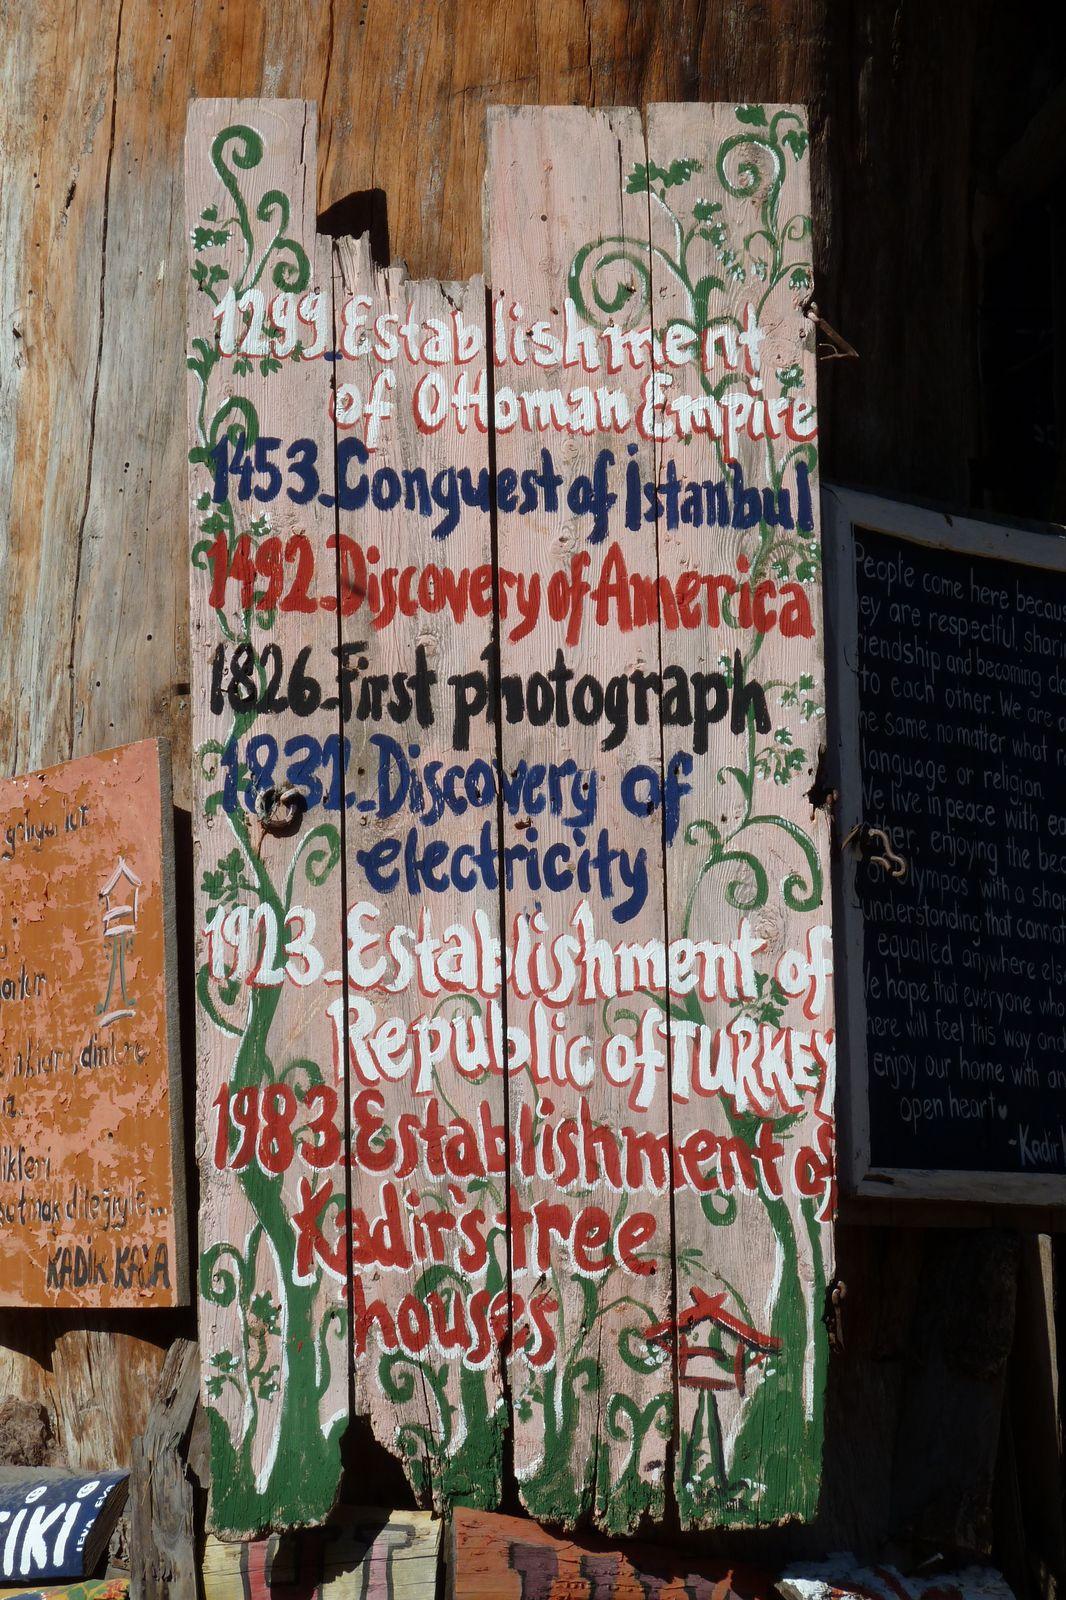 1299_Establishment
of Ottoman Empire
1453_Conguest of İstanbul
1492_Discovery of America
1826_First photograph
1831_Discovery of
electricity
1923_Establishment of
Republic of TURKEY
1983_Establishment of
Kadir's tree
houses
People come here becaus
ey are respectful, shari
riendship and becoming clo
to each other. We are a
he same, no matter what r
language or religion.
We live in peace with ea
other, enjoying the bea
of Olympos with a shar
understanding that cannot
equalled anywhere else
We hope that everyone who
here will feel this way and
enjoy our home with an
open heart
-Kadir
KADİR KAYA